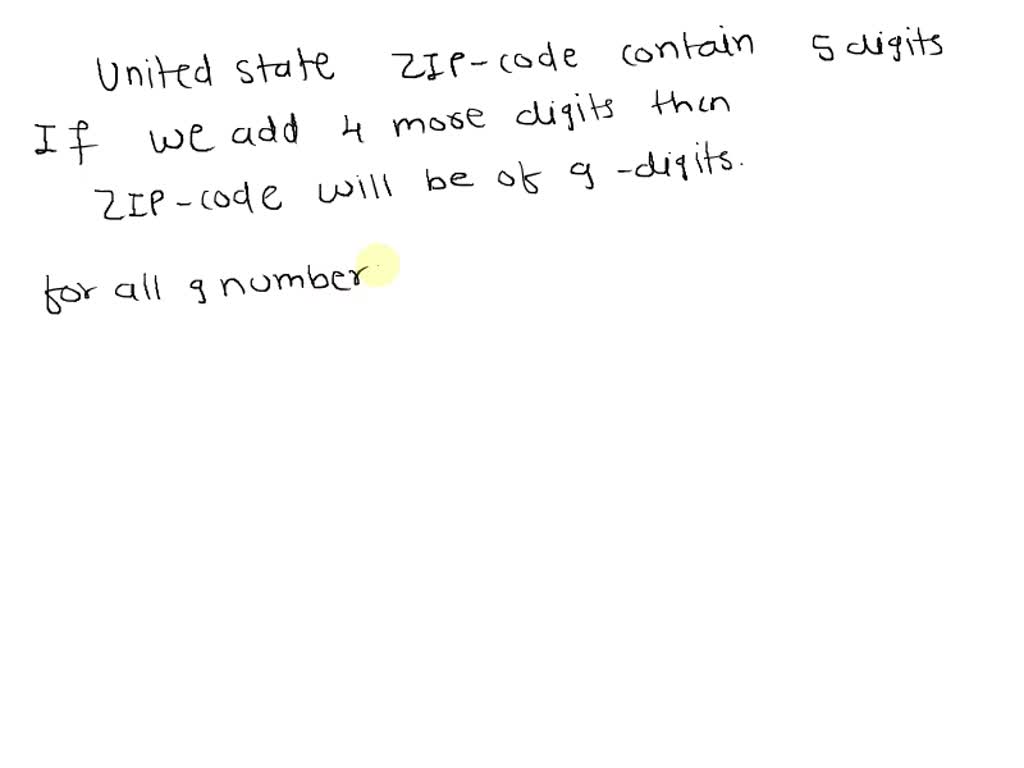 United state ZIP-code contain 5 digits
If we add 4 more digits then
ZIP-code will be of 9-digits.
for all 9 number